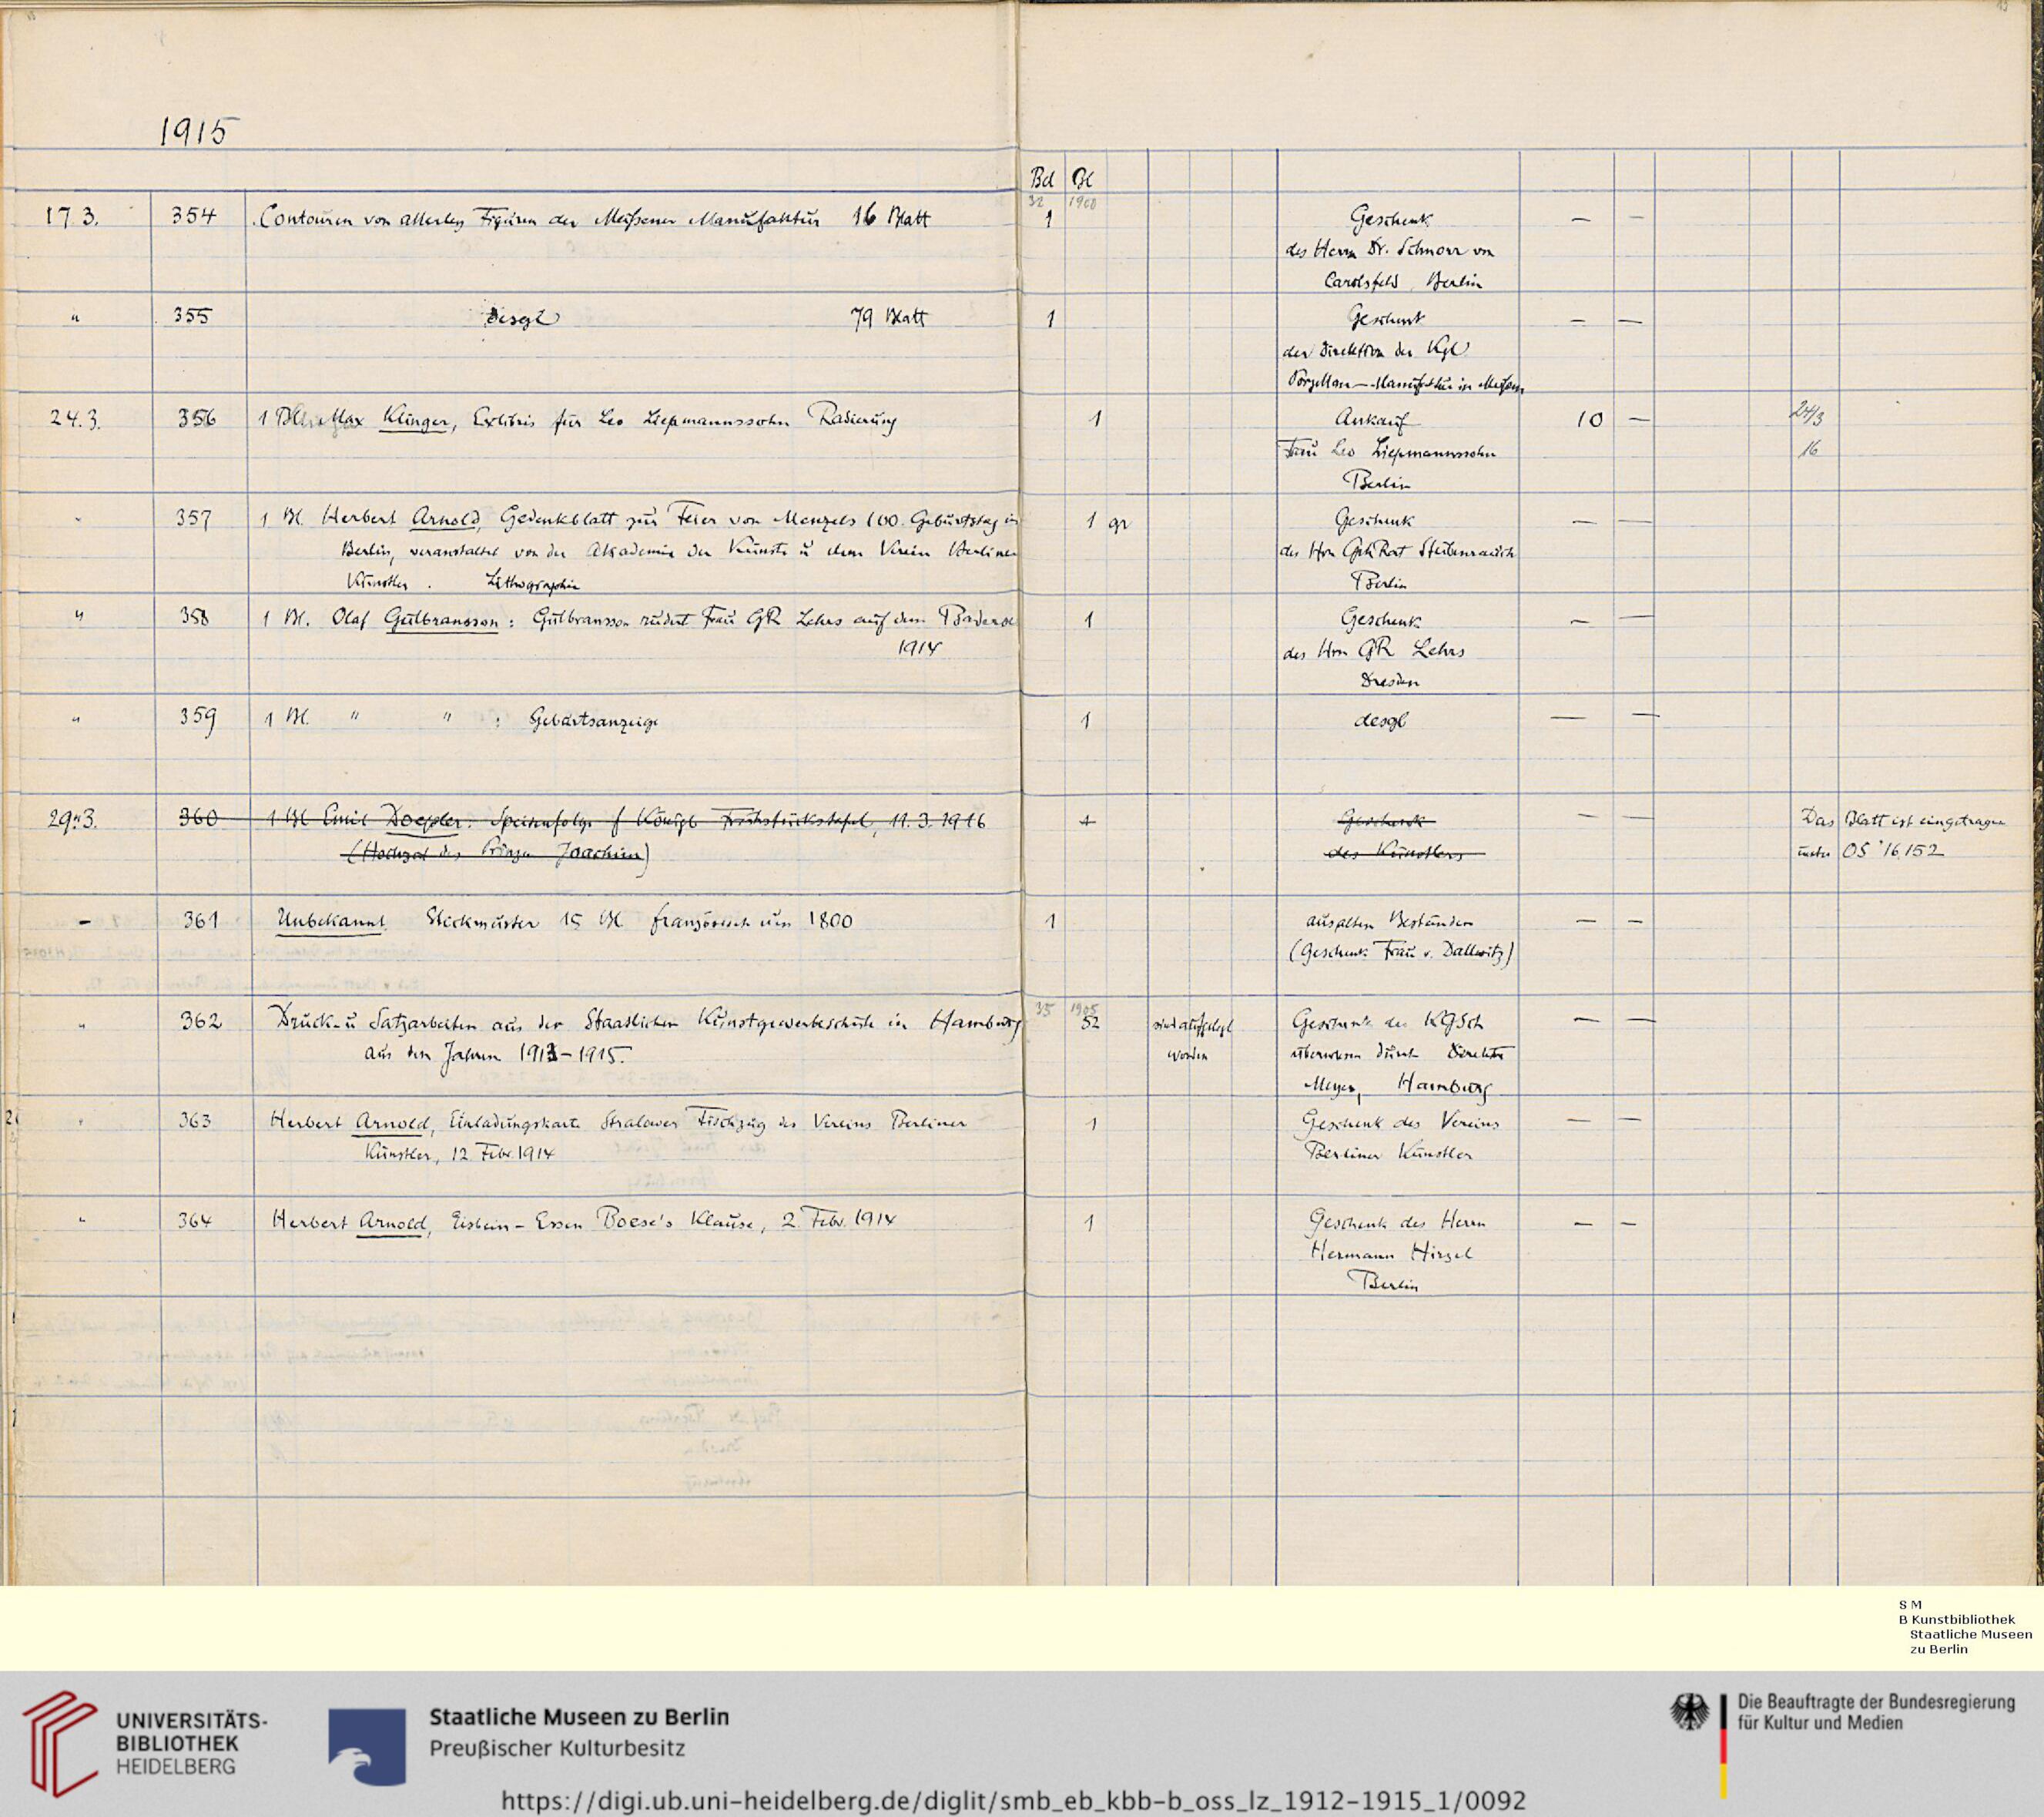 1915
Bd Bl
32 1900
17.3. 354 Contouren von allerley Figuren der Meißener Manufaktur 16 Blatt 1 Geschenk — —
des Herrn Dr. Schnorr von
Carolsfeld, Berlin
" 355 desgl 79 Blatt 1 Geschenk — —
der Direktion der Kgl
Porzellan-Manufaktur in Meißen
24.3. 356 1 Bl Max Klinger, Exlibris für Leo Liepmannssohn Radierung 1 Ankauf 10 — 24/3
Frau Leo Liepmannssohn 16
Berlin
" 357 1 Bl. Herbert Arnold, Gedenkblatt zur Feier von Menzels 100. Geburtstag in 1 gr Geschenk — —
Berlin, veranstaltet von der Akademie der Künste u dem Verein Berliner des Hrn Geh Rat
Künstler. Lithographie Berlin
" 358 1 Bl. Olaf Gulbransson: Gulbransson rudert Frau GR Lehrs auf dem 1 Geschenk — —
1914 des Hrn GR Lehrs
Dresden
" 359 1 Bl. " " : Geburtsanzeige 1 desgl — —
29.3. 360 1 Bl Emil Doepler: Speisenfolge f Königl Frühstückstafel, 11.3.1916 1 Geschenk — — Das Blatt ist eingetragen
(Hochzeit des Prinzen Joachim) des Künstlers unter OS '16,152
— 361 Unbekannt Stickmuster 15 Bl. französisch um 1800 1 aus alten Beständen — —
(Geschenk Frau v. Dallwitz)
35 1905
" 362 Druck- u Satzarbeiten aus der Staatlichen Kunstgewerbeschule in Hamburg 52 sind aufgelegt Geschenk der KGSch — —
aus den Jahren 1913-1915. worden überwiesen durch Direktor
Meyer, Hamburg
" 363 Herbert Arnold, Einladungskarte Stralauer Fischzug des Vereins Berliner 1 Geschenk des Vereins — —
Künstler, 12. Febr. 1914 Berliner Künstler
" 364 Herbert Arnold, Eisbein-Essen Boese's Klause, 2. Febr. 1914 1 Geschenk des Herrn — —
Hermann Hirzel
Berlin
S M
B Kunstbibliothek
Staatliche Museen
zu Berlin
UNIVERSITÄTS-
BIBLIOTHEK
HEIDELBERG
Staatliche Museen zu Berlin
Preußischer Kulturbesitz
Die Beauftragte der Bundesregierung
für Kultur und Medien
https://digi.ub.uni-heidelberg.de/diglit/smb_eb_kbb-b_oss_lz_1912-1915_1/0092